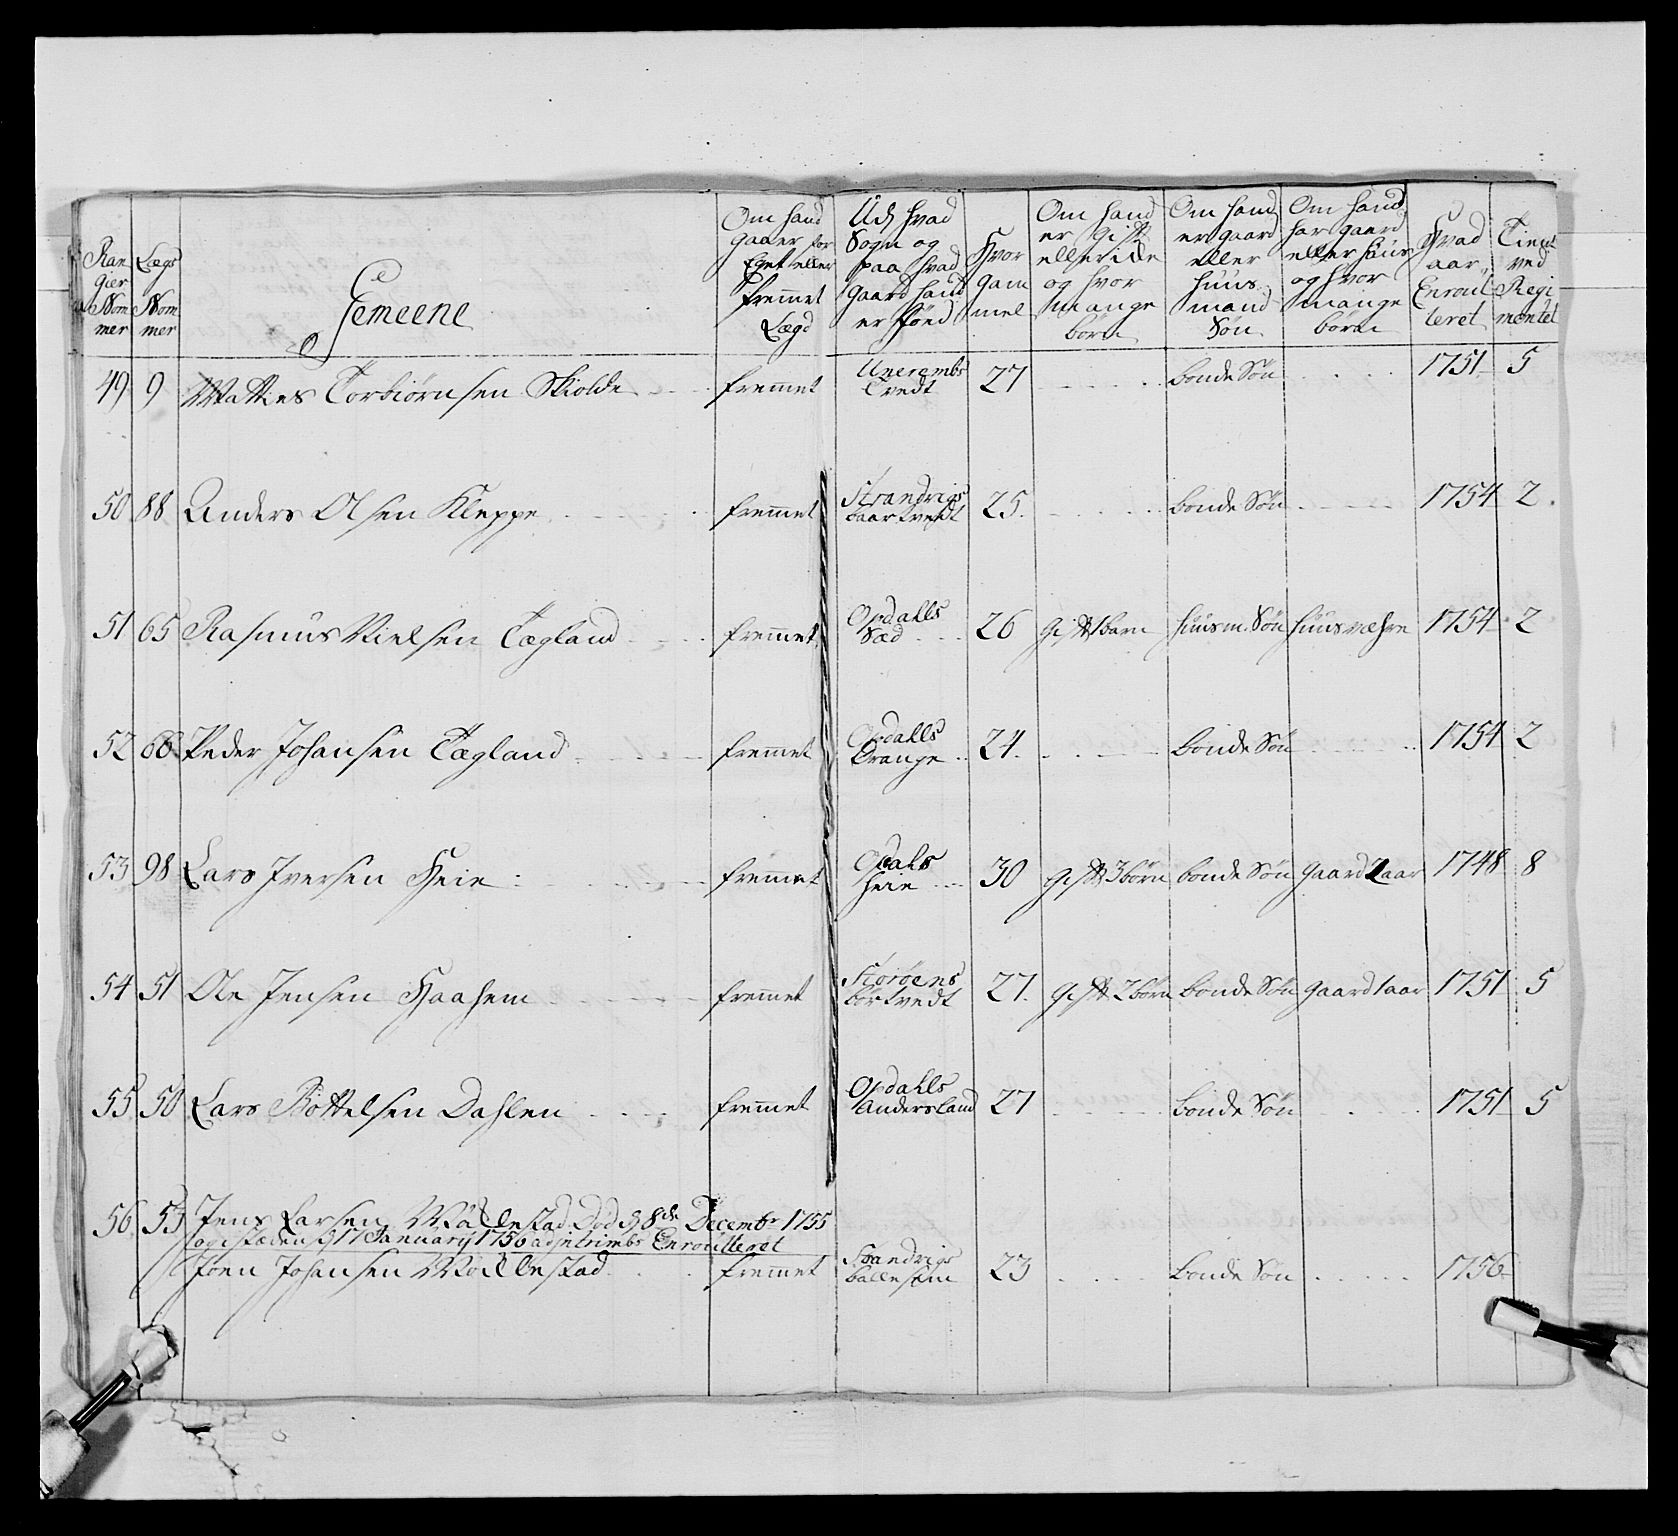 Ran Gier Nom mer
Lægs Nom mer
Gemeene
Om hand gaaer for Eget eller fremmet Lægd
Ud hvad Sogn og paa hvad gaard hand er född
Hvor gam mel
Om hand er gift eller icke og hvor mange börn
Om hand er gaard eller huus mand Søn
Om hand har gaard eller huus og hvor mange börn
Hvad aar Enroul leret
Tient ved Regi mentet
49 9 Matties Torbiörnsen Skiolde fremmet Tvedt 27 bonde Søn 1751 5
50 88 Anders Olsen Kleppe fremmet Strandvigs baartvedt 25 bonde Søn 1754 2
51 65 Rasmus Nielsen Tægland fremmet Opdahls Sæd 26 gift 1 barn huusm. Søn huusvæhre 1754 2
52 66 Peder Johansen Tægland fremmet Opdahls Drange 24 bonde Søn 1754 2
53 98 Lars Iversen Heie fremmet Opdahls heie 30 gift 3 börn bonde Søn gaard 2 aar 1748 8
54 51 Ole Jensen Haahem fremmet Storöens börtvedt 27 gift 2 börn bonde Søn gaard 1 aar 1751 5
55 50 Lars Bottelsen Dahlen fremmet Opdahls Andersland 27 bonde Søn 1751 5
56 53 Jens Larsen Död d 8de Decembr 1755
og i stæden d 17 January 1756 ad intrimbs Enroulleret
Joen Johansen fremmet Strandvigs ballesem 23 bonde Søn 1756